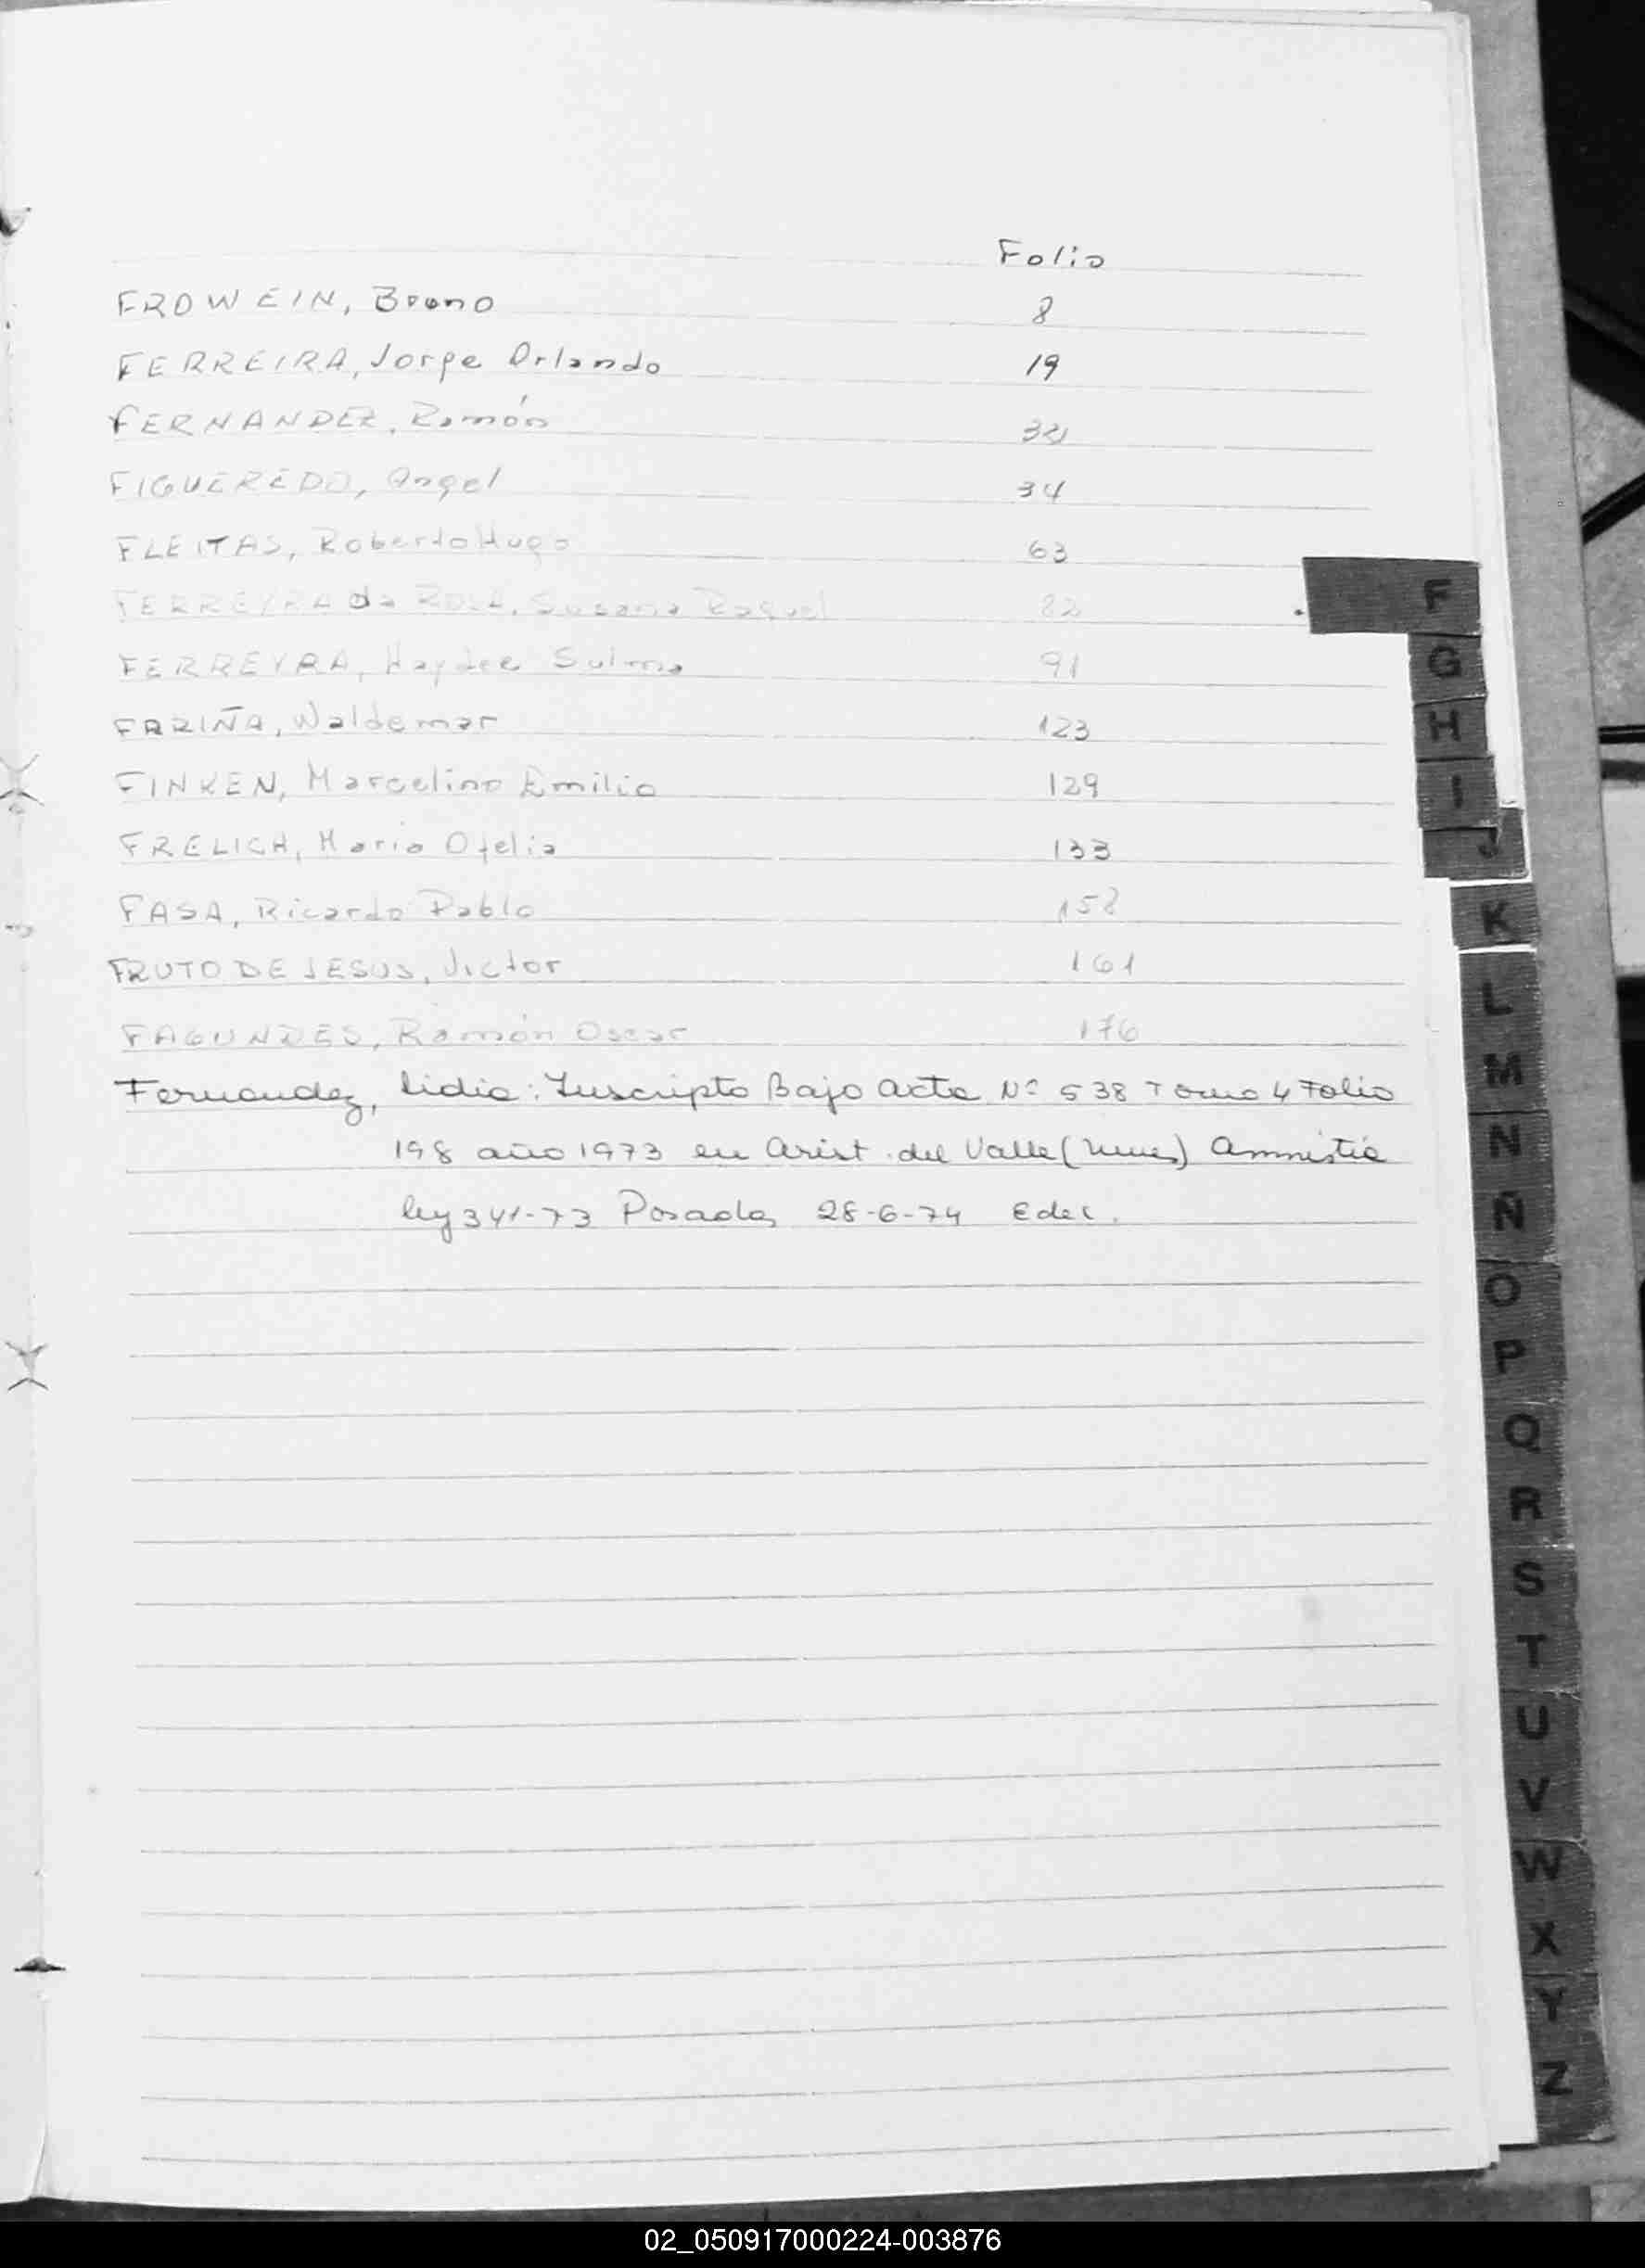 Folio
FROWEIN, Bruno 8
FERREIRA, Jorge Orlando 19
FERNANDEZ, Ramón
FIGUEREDO, Angel 34
FLEITAS, Roberto Hugo 63
FERREYRA da ROSA, Susana Raquel 82
FERREYRA, Haydee Sulma 91
FARIÑA, Waldemar 123
FINKEN, Marcelino Emilio 129
FRELICH, Maria Ofelia 133
FASA, Ricardo Pablo 158
FRUTO DE JESUS, Victor 161
FAGUNDES, Ramón Oscar 176
Fernandez, Lidia: Inscripto Bajo acta Nº 538 Tomo 4 Folio
198 año 1973 en Arist. del Valle ( ) Amnistia
ley 341-73 Posadas 28-6-74
F
G
H
I
J
K
L
M
N
Ñ
O
P
Q
R
S
T
U
V
W
X
Y
Z
02_050917000224-003876